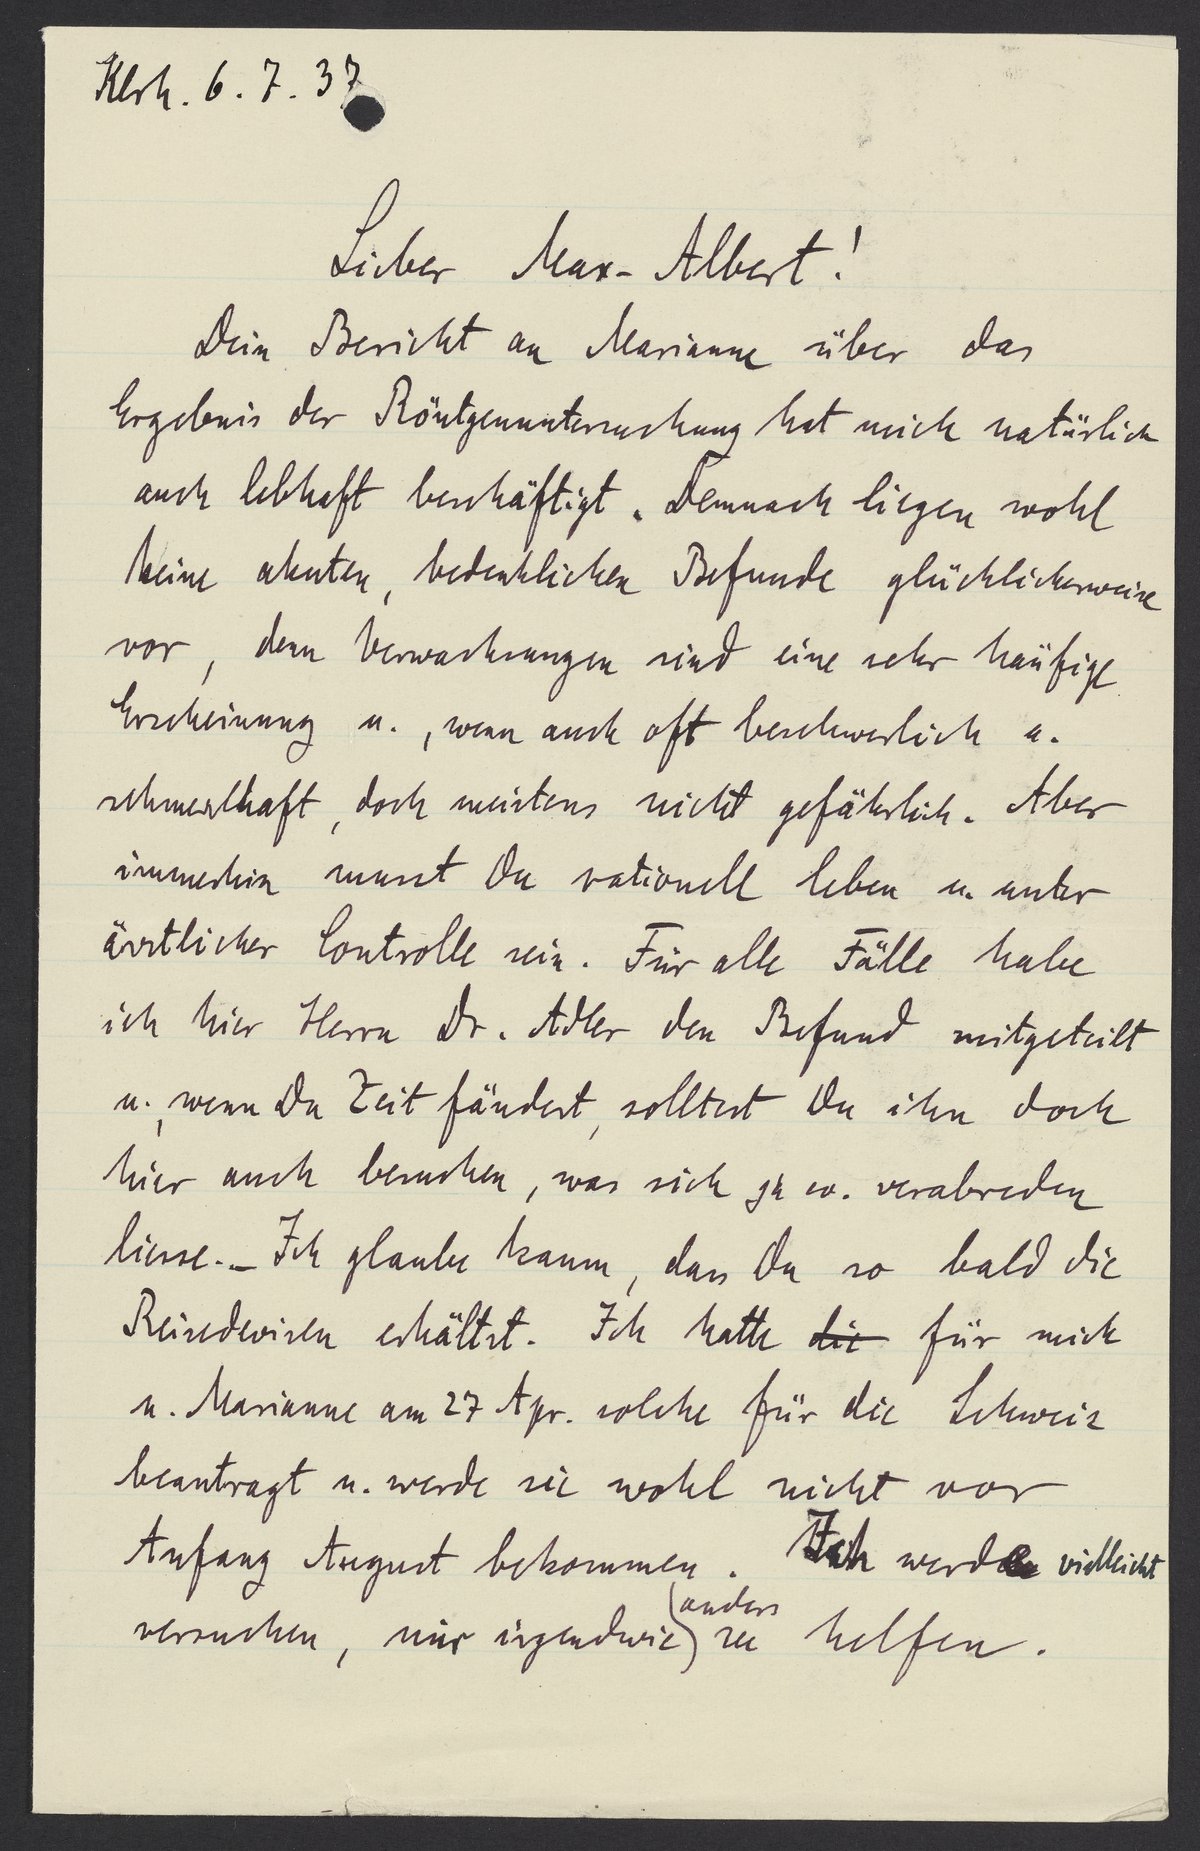 Klrh. 6.7.37
Lieber Max-Albert!
Dein Bericht an Marianne über das
Ergebnis der Röntgenuntersuchung hat mich natürlich
auch lebhaft beschäftigt. Demnach liegen wohl
keine akuten, bedenklichen Befunde glücklicherweise
vor, denn Verwachsungen sind eine sehr häufige
Erscheinung u., wenn auch oft beschwerlich u.
schmerzhaft, doch meistens nicht gefährlich. Aber
immerhin musst Du rationell leben u. unter
ärztlicher Controlle sein. Für alle Fälle habe
ich hier Herrn Dr. Adler den Befund mitgeteilt
u., wenn Du Zeit fändest, solltest Du ihn doch
hier auch besuchen, was sich ja ev. verabreden
liesse.- Ich glaube kaum, dass Du so bald die
Reisedevisen erhältst. Ich hatte die für mich
u. Marianne am 27 Apr. solche für die Schweiz
beantragt u. werde sie wohl nicht vor
Anfang August bekommen. Ich werde vielleicht
versuchen, mir irgendwie anders zu helfen.